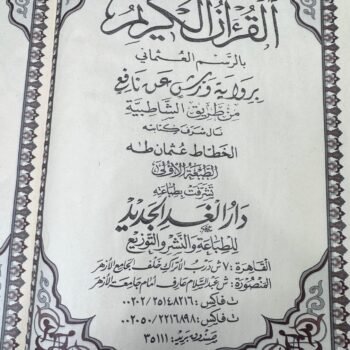 القرآن الكريم
بالرسم العثماني
برواية ورش عن نافع
من طريق الشاطبية
نال شرف كتابته
الخطاط عثمان طه
الطبعة الأولى
تشرفت بطباعته
دار الغد الجديد
للطباعة والنشر والتوزيع
القاهرة : ٧ ش درب الأتراك خلف الجامع الأزهر
المنصورة : ش عبد السلام عارف أمام جامعة الأزهر
ت فاكس : ٠٠٢٠٢/٢٥١٤٨٢١٦
ت فاكس : ٠٠٢٠٥٠/٢٢١٦٨٩٨
صندوق بريد : ٣٥١١١